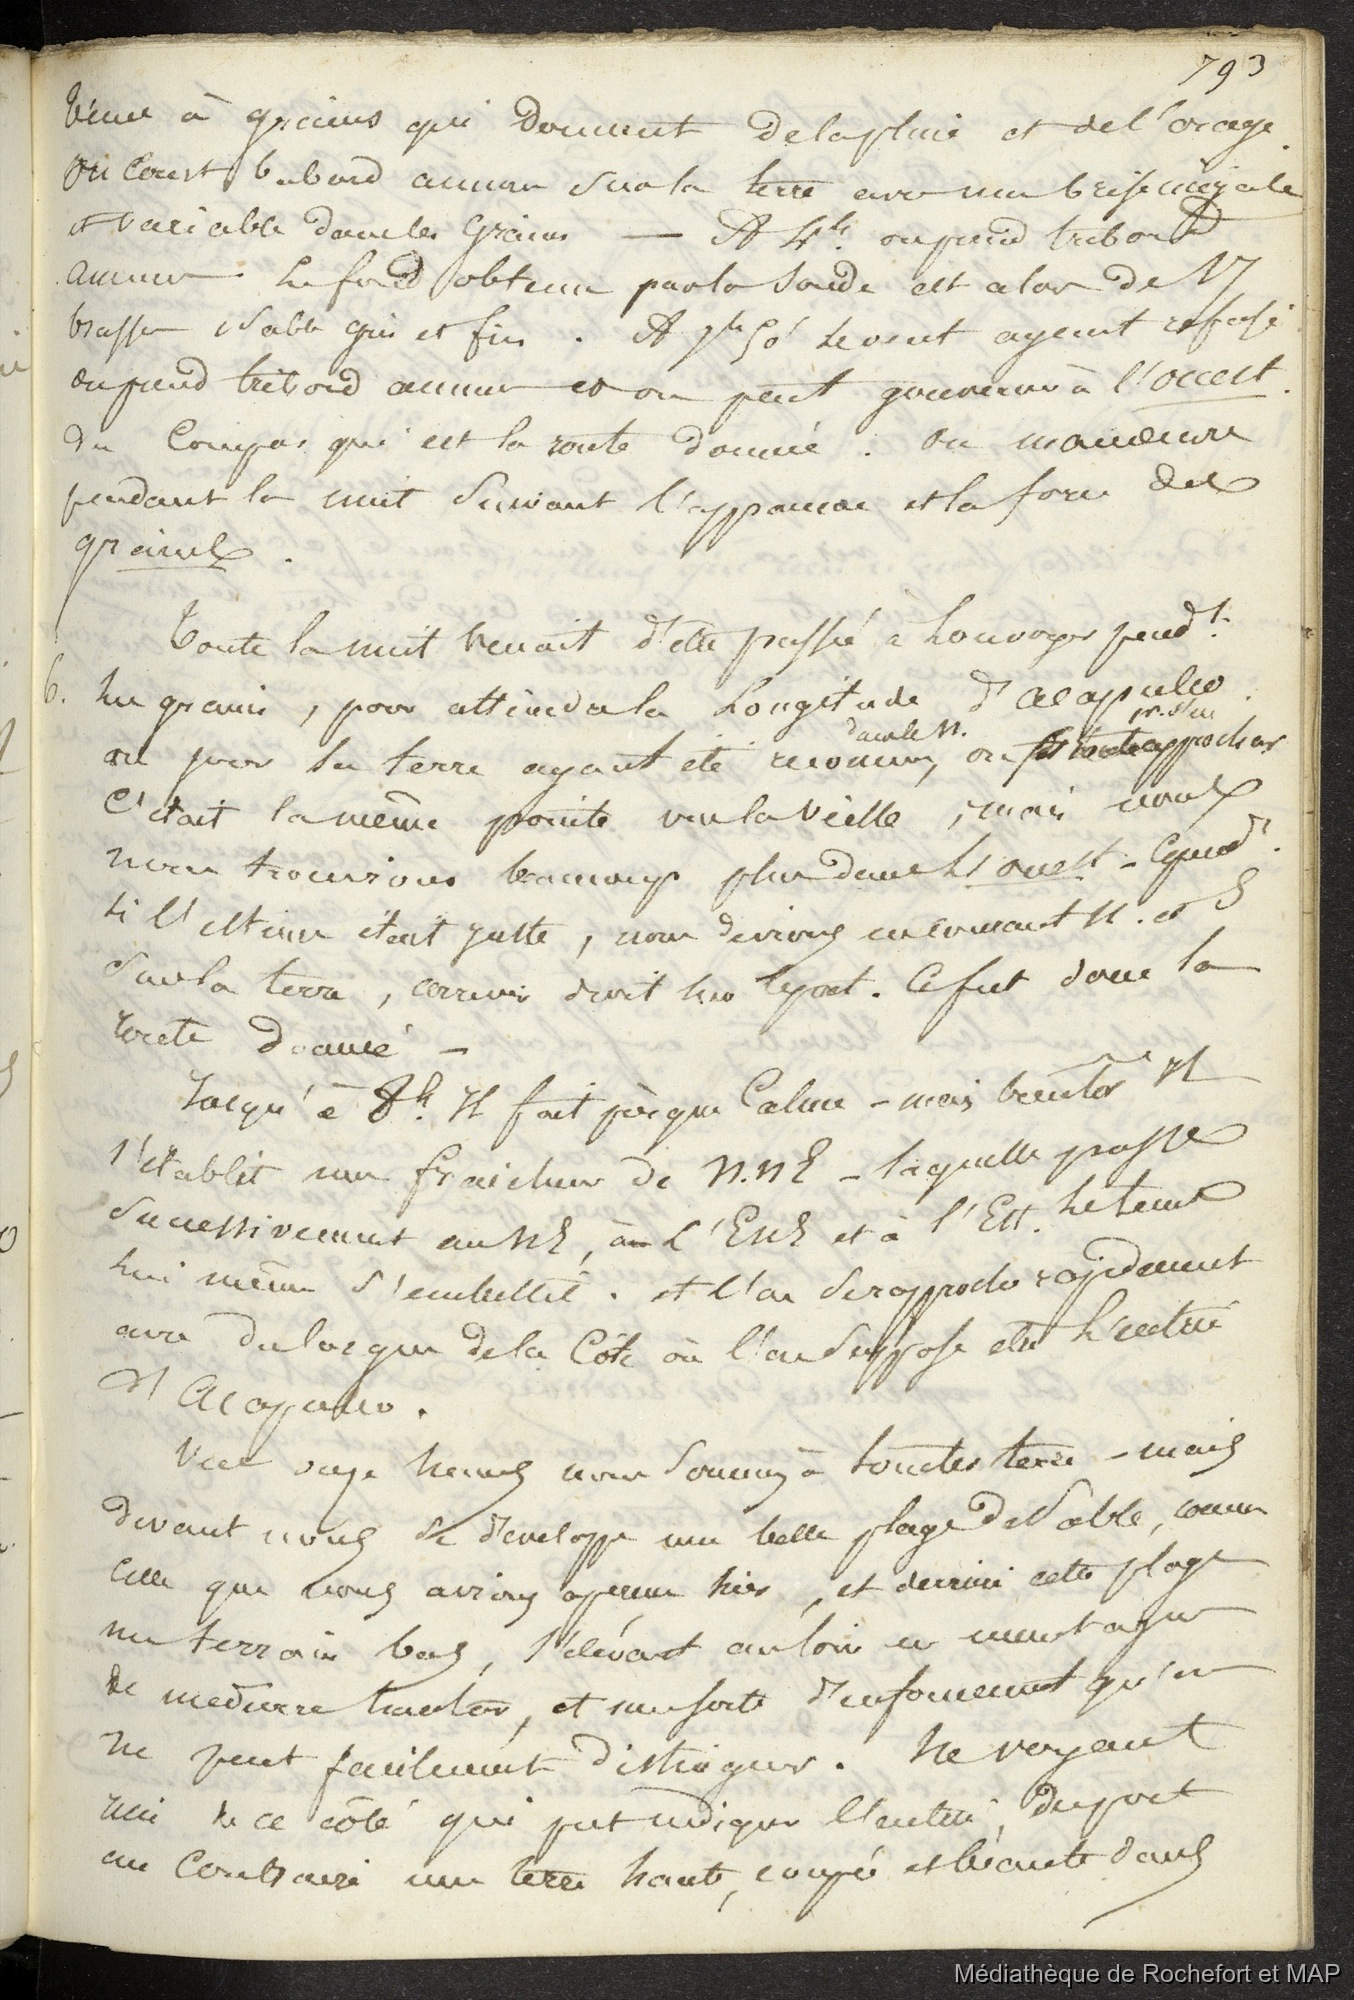 793
à grains qui donnent de la pluie et de l'orage.
On court babord amure sur la terre avec une brise inégale
et variable dans les grains — A 4h. on prend tribord
amure. Le fond obtenu par la sonde est alors de 17
brasses sable gris et fin. A 7h 50' le vent ayant refusé
on prend tribord amure et on peut gouverner à l'ouest.
du Compas qui est la route donnée. On manœuvre
pendant la nuit suivant l'apparence et la force des
grains.
Toute la nuit venait d'être passée à louvoyer pendt.
6. les grains, pour atteindre la Longitude d'Acapulco.
au jour la terre ayant été reconnue, dans le N. on approcher
C'était la même pointe vue la veille, mais nous
nous trouvions beaucoup plus dans l'ouest - Cepend.
si l'estime était juste, nous devions en courant N. et S
sur la terre, arriver droit sur le port. Ce fut donc la
route donnée —
Jusqu'à 8h. Il fait presque Calme - mais bientôt Il
s'établit une fraicheur de N.NE - laquelle passe
successivement au NE, à L'ENE et à l'Est. Le temps
lui même s'embellit. et l'on se rapproche rapidement
avec du largue de la Côte où l'on suppose être l'entrée
d'Acapulco.
Vers onze heures nous sommes à toucher terre - mais
devant nous se développe une belle plage de sable, comme
celle que nous avions aperçue hier, et derrière cette plage
un terrain bas, s'élevant au loin en montagnes
de médiocre hauteur, et une sorte d'enfoncement qu'on
ne peut facilement distinguer. Ne voyant
rien de ce côté qui put indiquer l'entrée, du port
au Contraire une terre haute, coupée et béante dans
Médiathèque de Rochefort et MAP